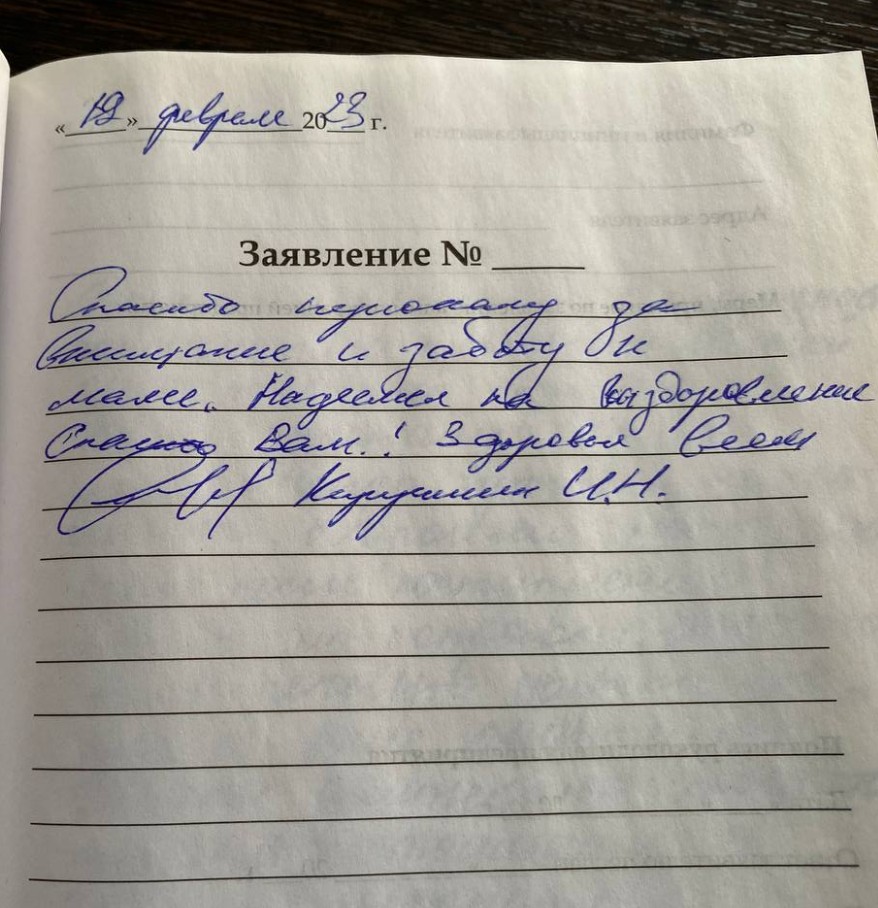 «19» февраля 2023 г.
Заявление № ____
Спасибо персоналу за
внимание и заботу к
маме. Надеемся на выздоровление
Спасибо Вам! Здоровья всем
И.Н.